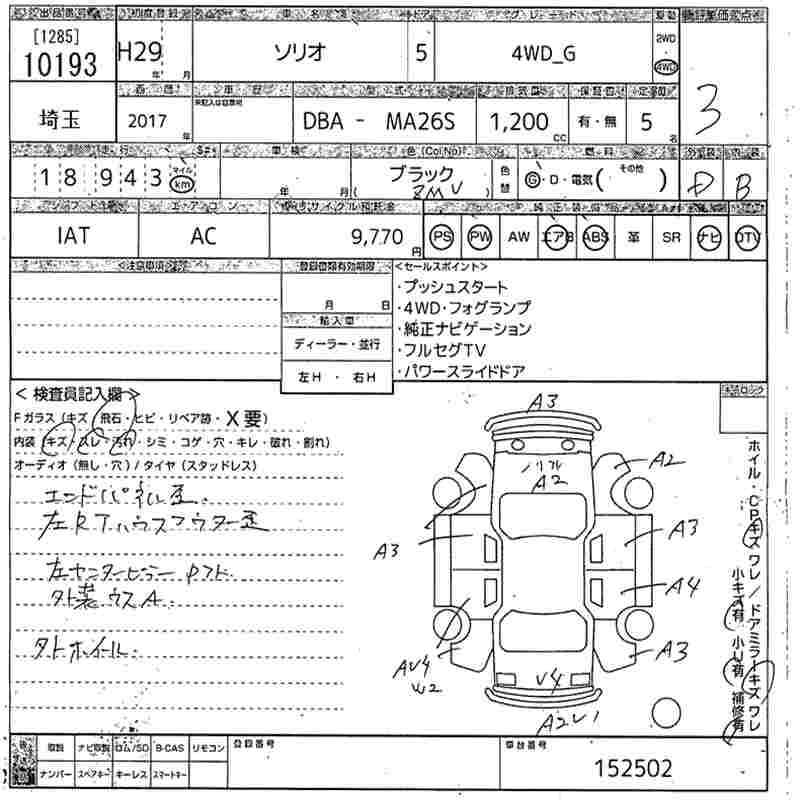 出品番号 初度登録 車名 ドア グレード 駆動 評価点
[1285]
10193 H29 年 月 ソリオ 5 4WD_G 2WD 4WD 3
西暦 車歴 型式 排気量 定員
埼玉 2017 年 DBA - MA26S 1,200 CC 有・無 5 名
走行 車検 色(Col No) 燃料 外装 内装
18943 マイル km 年 月 ブラック ZMV 色替 G・D・電気( その他 ) D B
シフト エアコン リサイクル預託金 純正装備
IAT AC 9,770 円 PS PW AW エアB ABS 革 SR ナビ DTV
<注意事項> 登録書類有効期限 <セールスポイント>
月 日 ・プッシュスタート
輸入車 ・4WD・フォグランプ
ディーラー・並行 ・純正ナビゲーション
左H・右H ・フルセグTV
・パワースライドドア
<検査員記入欄>
Fガラス(キズ・飛石・ヒビ・リペア跡・X要)
内装(キズ・スレ・汚れ・シミ・コゲ・穴・キレ・破れ・割れ)
オーディオ(無し・穴)/タイヤ(スタッドレス)
エンドパネル歪.
左Rタイヤハウスアウター歪
左センターピラー
外装 ウスA.
タトホイール.
A3
ノリフレ
A2
A2
A3
A3
A4
A3
AV4
W2
V4
A2V1
ホイル・CPキズ ワレ/ドアミラーキズ ワレ
小キズ有 小U有 補修有
取説 ナビ取説 ロム/SD B-CAS リモコン 登録番号 車台番号
ナンバー スペアキー キーレス スマートキー 152502